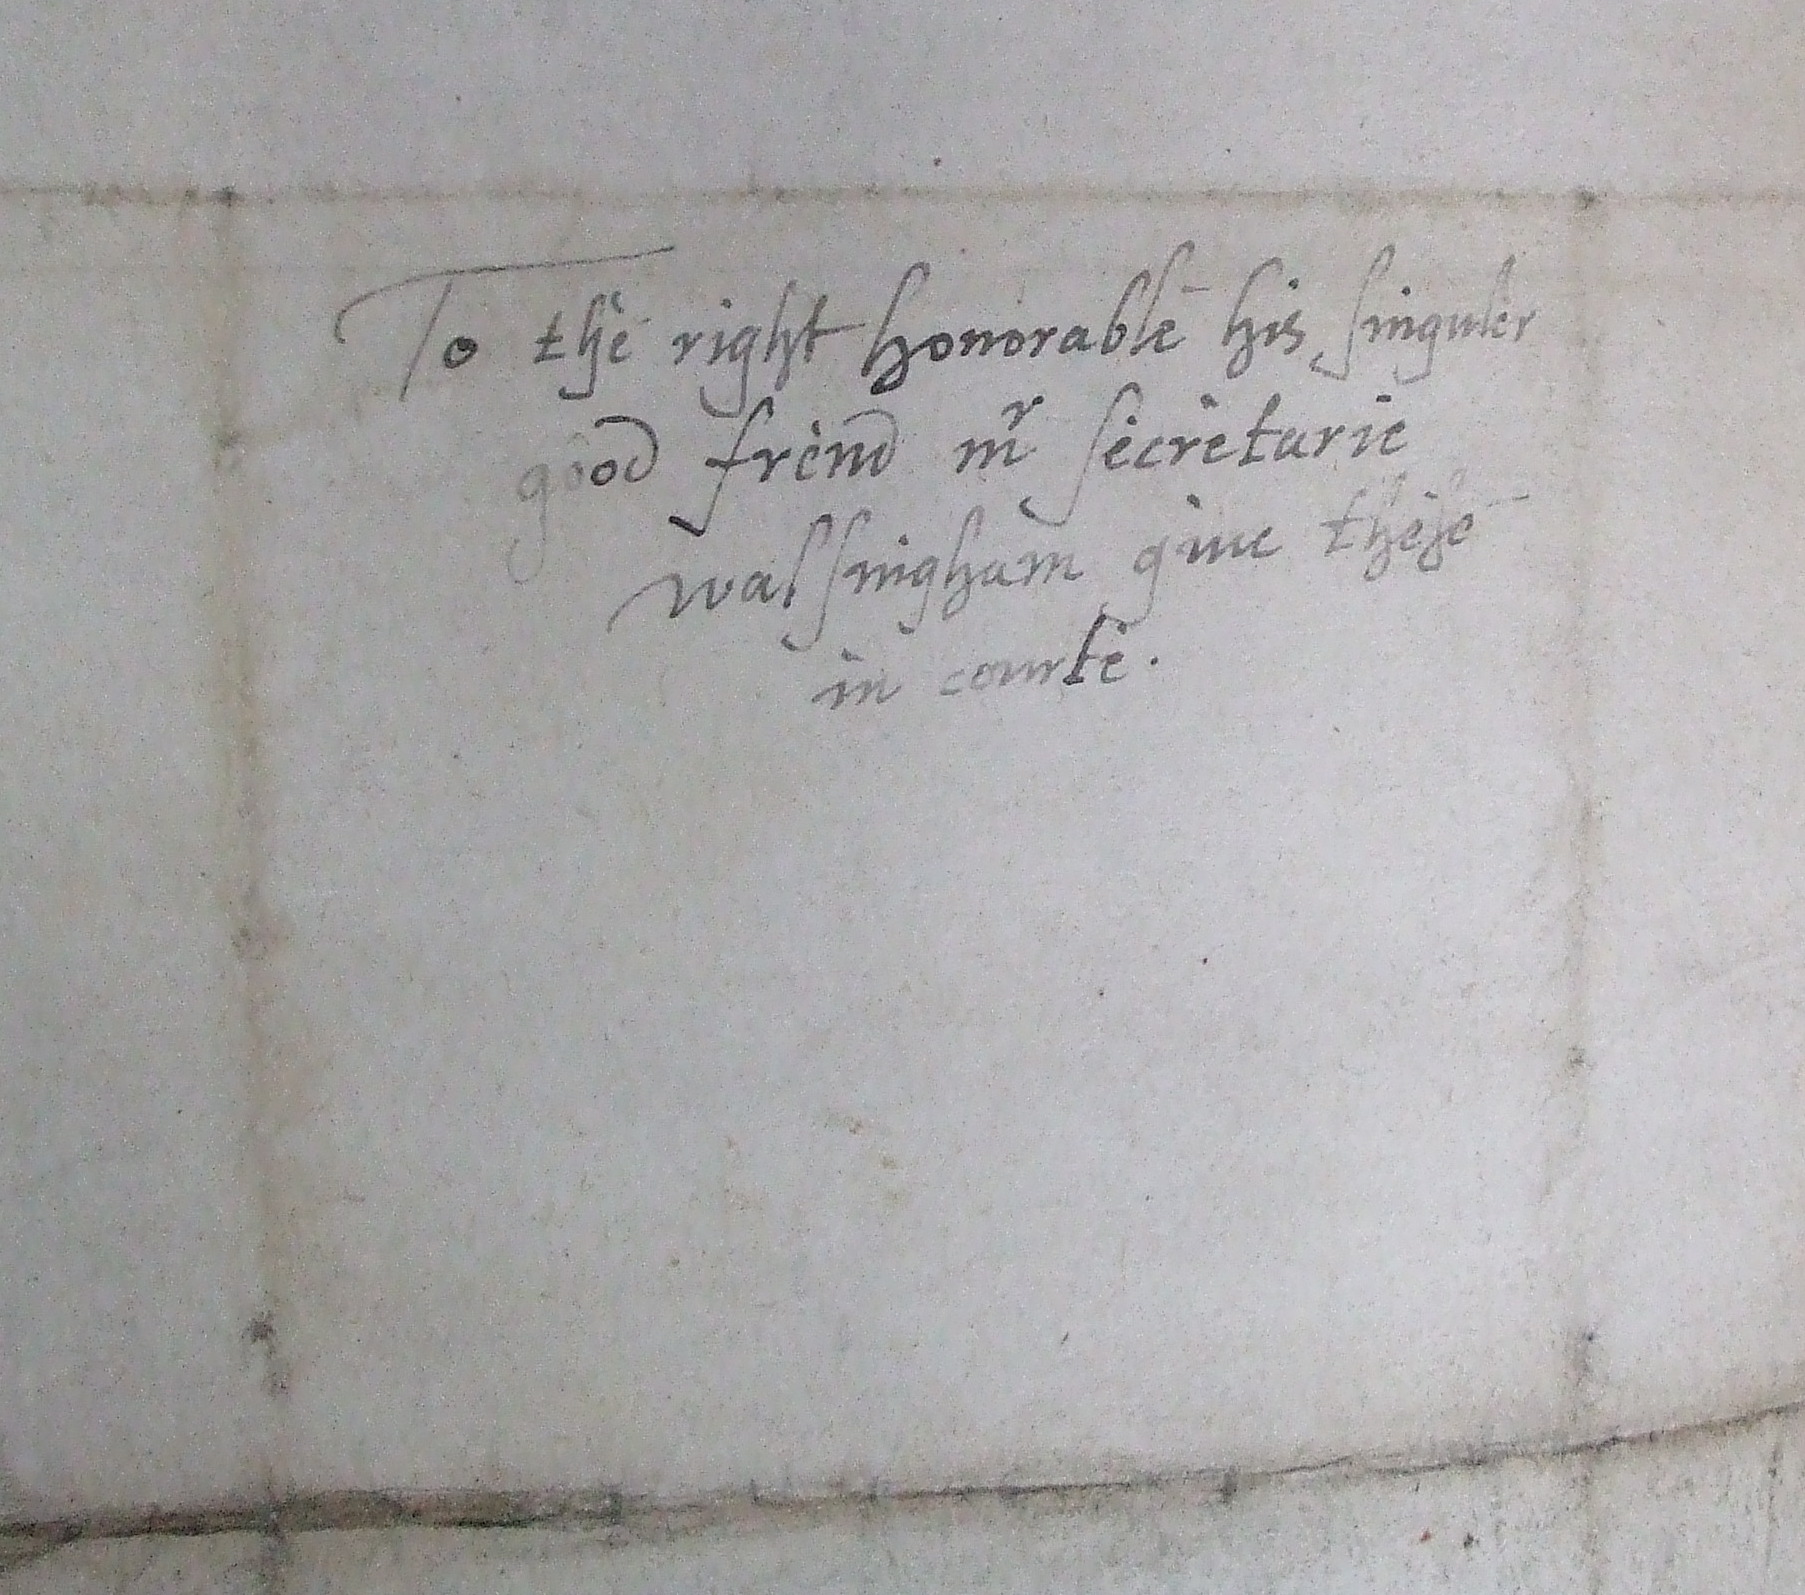 To the right honorable his singuler
good frend mr secretarie
walsingham giue these
in courte.